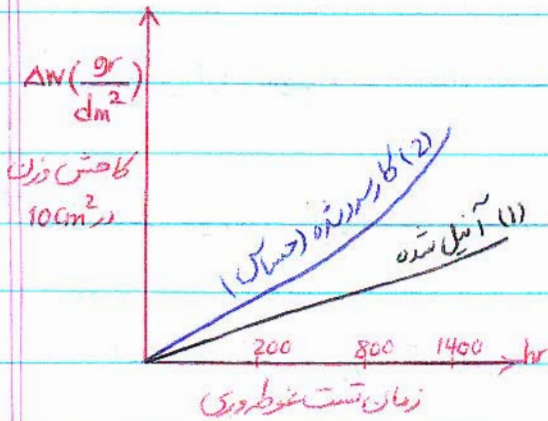 ΔW(gr/dm²)
کاهش وزن
در 10cm²
(2) کار سرد شده (حساس)
(1) آنیل شده
200 800 1400 hr
زمان تست غوطه‌وری